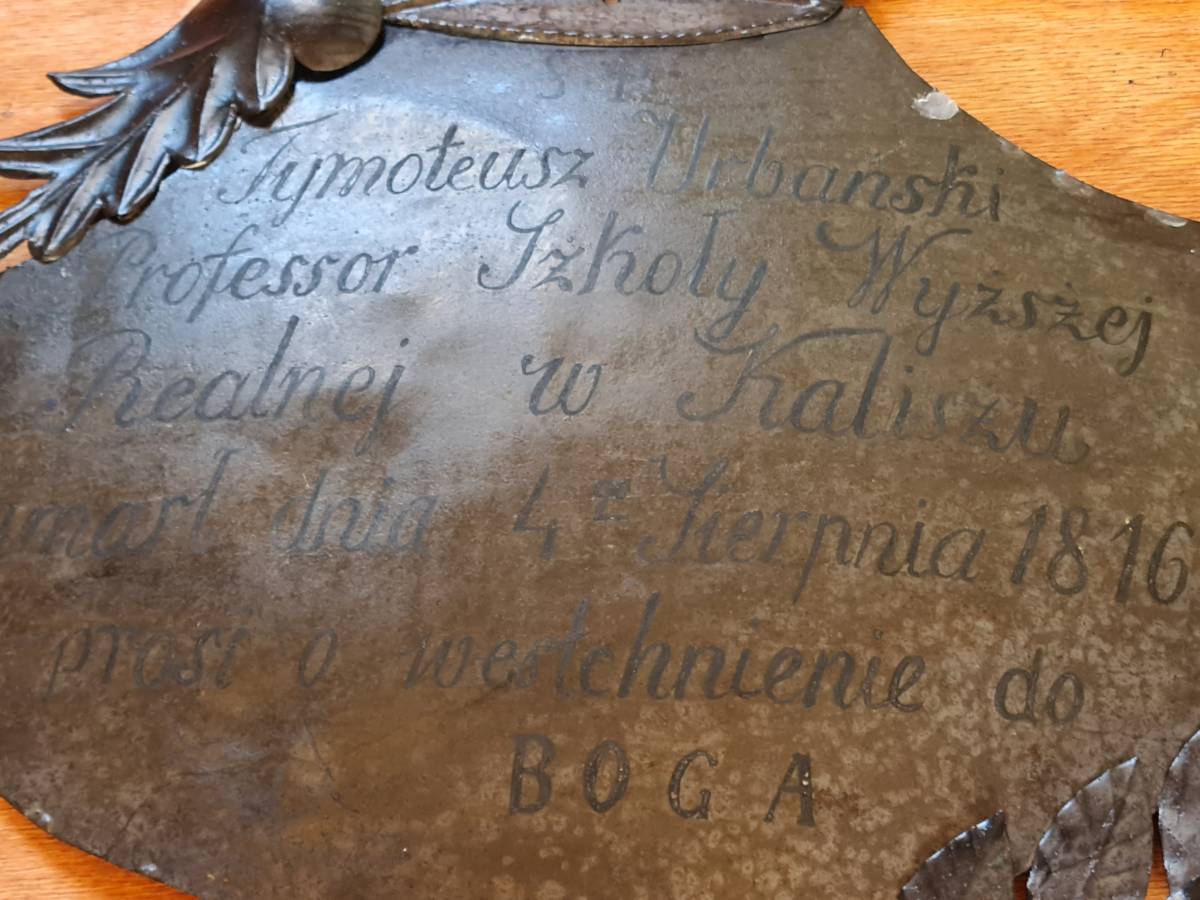 Ś P
Tymoteusz Urbański
Professor Szkoły Wyższej
Realnej w Kaliszu
umarł dnia 4 go Sierpnia 1816
prosi o westchnienie do
BOGA